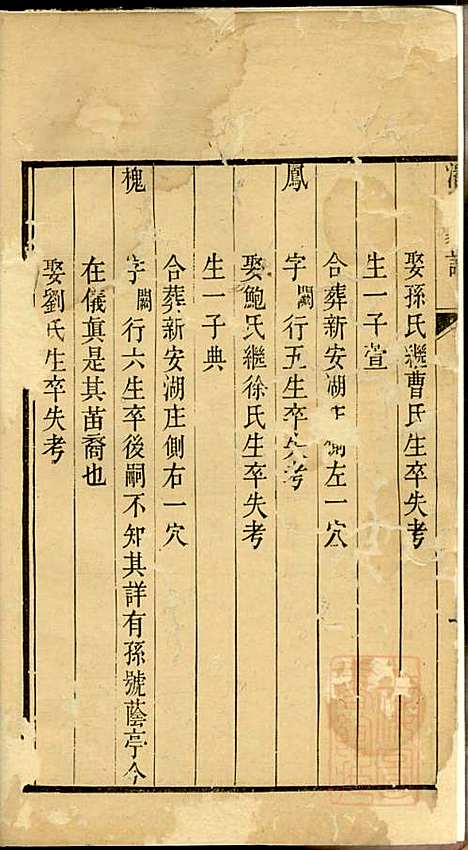 娶孫氏繼曹氏生卒失考
生一子萱
合葬新安湖庄側左一穴
鳳 字闕行五生卒失考
娶鮑氏繼徐氏生卒失考
生一子典
合葬新安湖庄側右一穴
槐 字闕行六生卒後嗣不知其詳有孫號蔭亭今
在儀真是其苗裔也
娶劉氏生卒失考